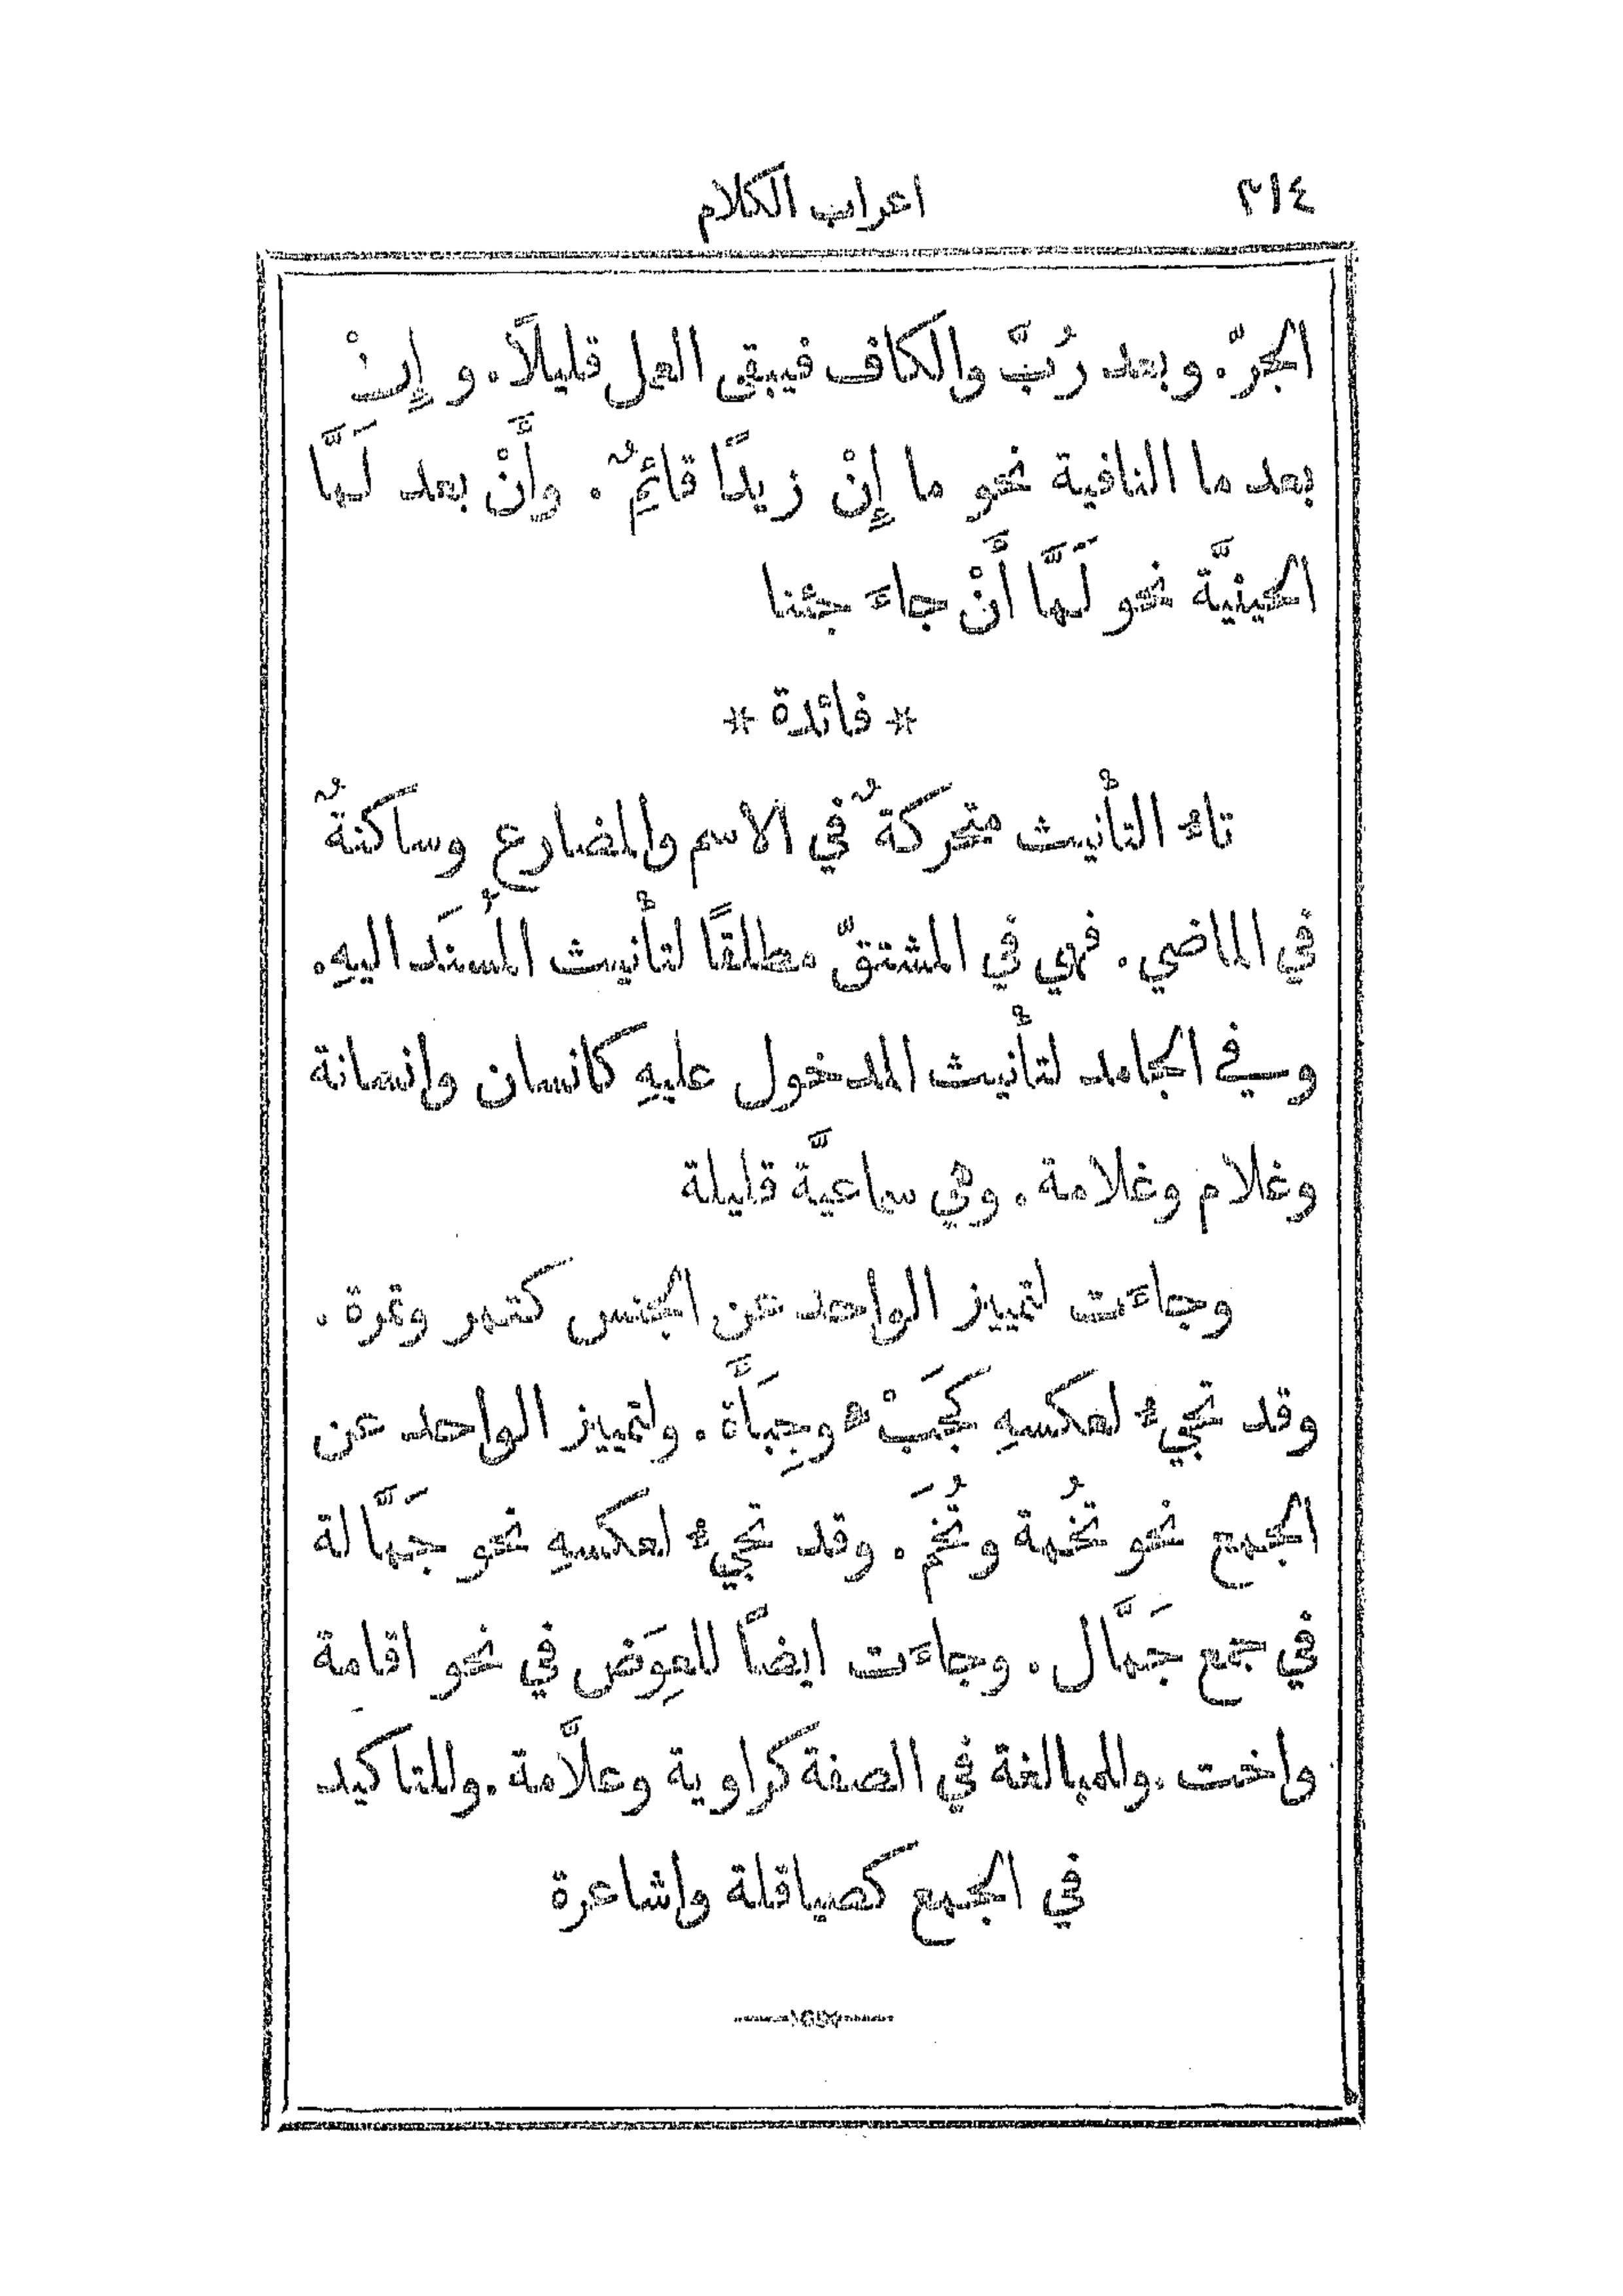 ٣١٤
اعراب الكلام
الجرّ. وبعد رُبَّ والكاف فيبقى العمل قليلًا. و إِنْ
بعد ما النافية نحو ما إِنْ زيدًا قائِمٌ. وأَنْ بعد لَمَّا
الحينيَّة نحو لَمَّا أَنْ جاءَ جئنا
* فائدة *
تاء التأْنيث متحركةٌ في الاسم والمضارعِ وساكنةٌ
في الماضي. فهي في المشتقّ مطلقًا لتأْنيث المُسنَد اليهِ.
وفي الجامد لتأْنيث المدخول عليهِ كانسان وانسانة
وغلام وغلامة. وهي سماعيَّة قليلة
وجاءَت لتمييز الواحد عن الجنس كتمر وتمرة.
وقد تجيء لعكسهِ كجَبْء وجِبَأَة. ولتمييز الواحد عن
الجمع نحو تُخمة وتُخَم. وقد تجيء لعكسهِ نحو جَمَّالة
في جمع جَمَّال. وجاءَت ايضًا للعِوَض في نحو اقامة
واخت. وللمبالغة في الصفة كراوية وعلَّامة. وللتاكيد
في الجمع كصياقلة واشاعرة